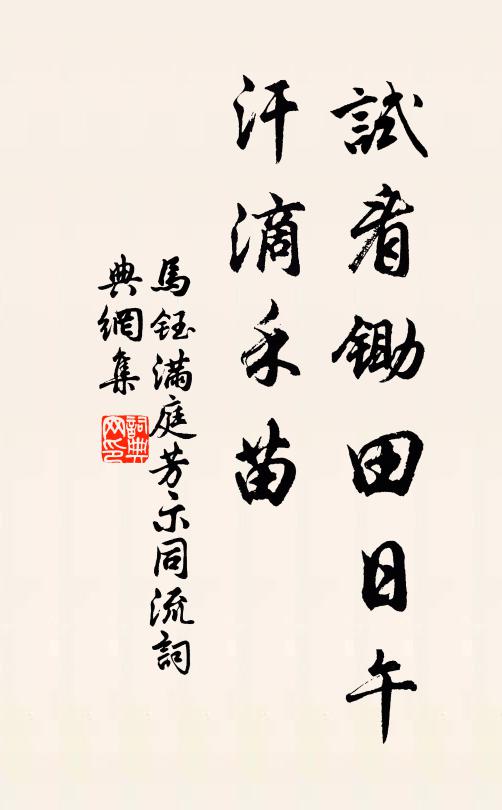 試看鋤田日午
汗滴禾苗
馬鈺滿庭芳示同流詞
典網集
詞典網印